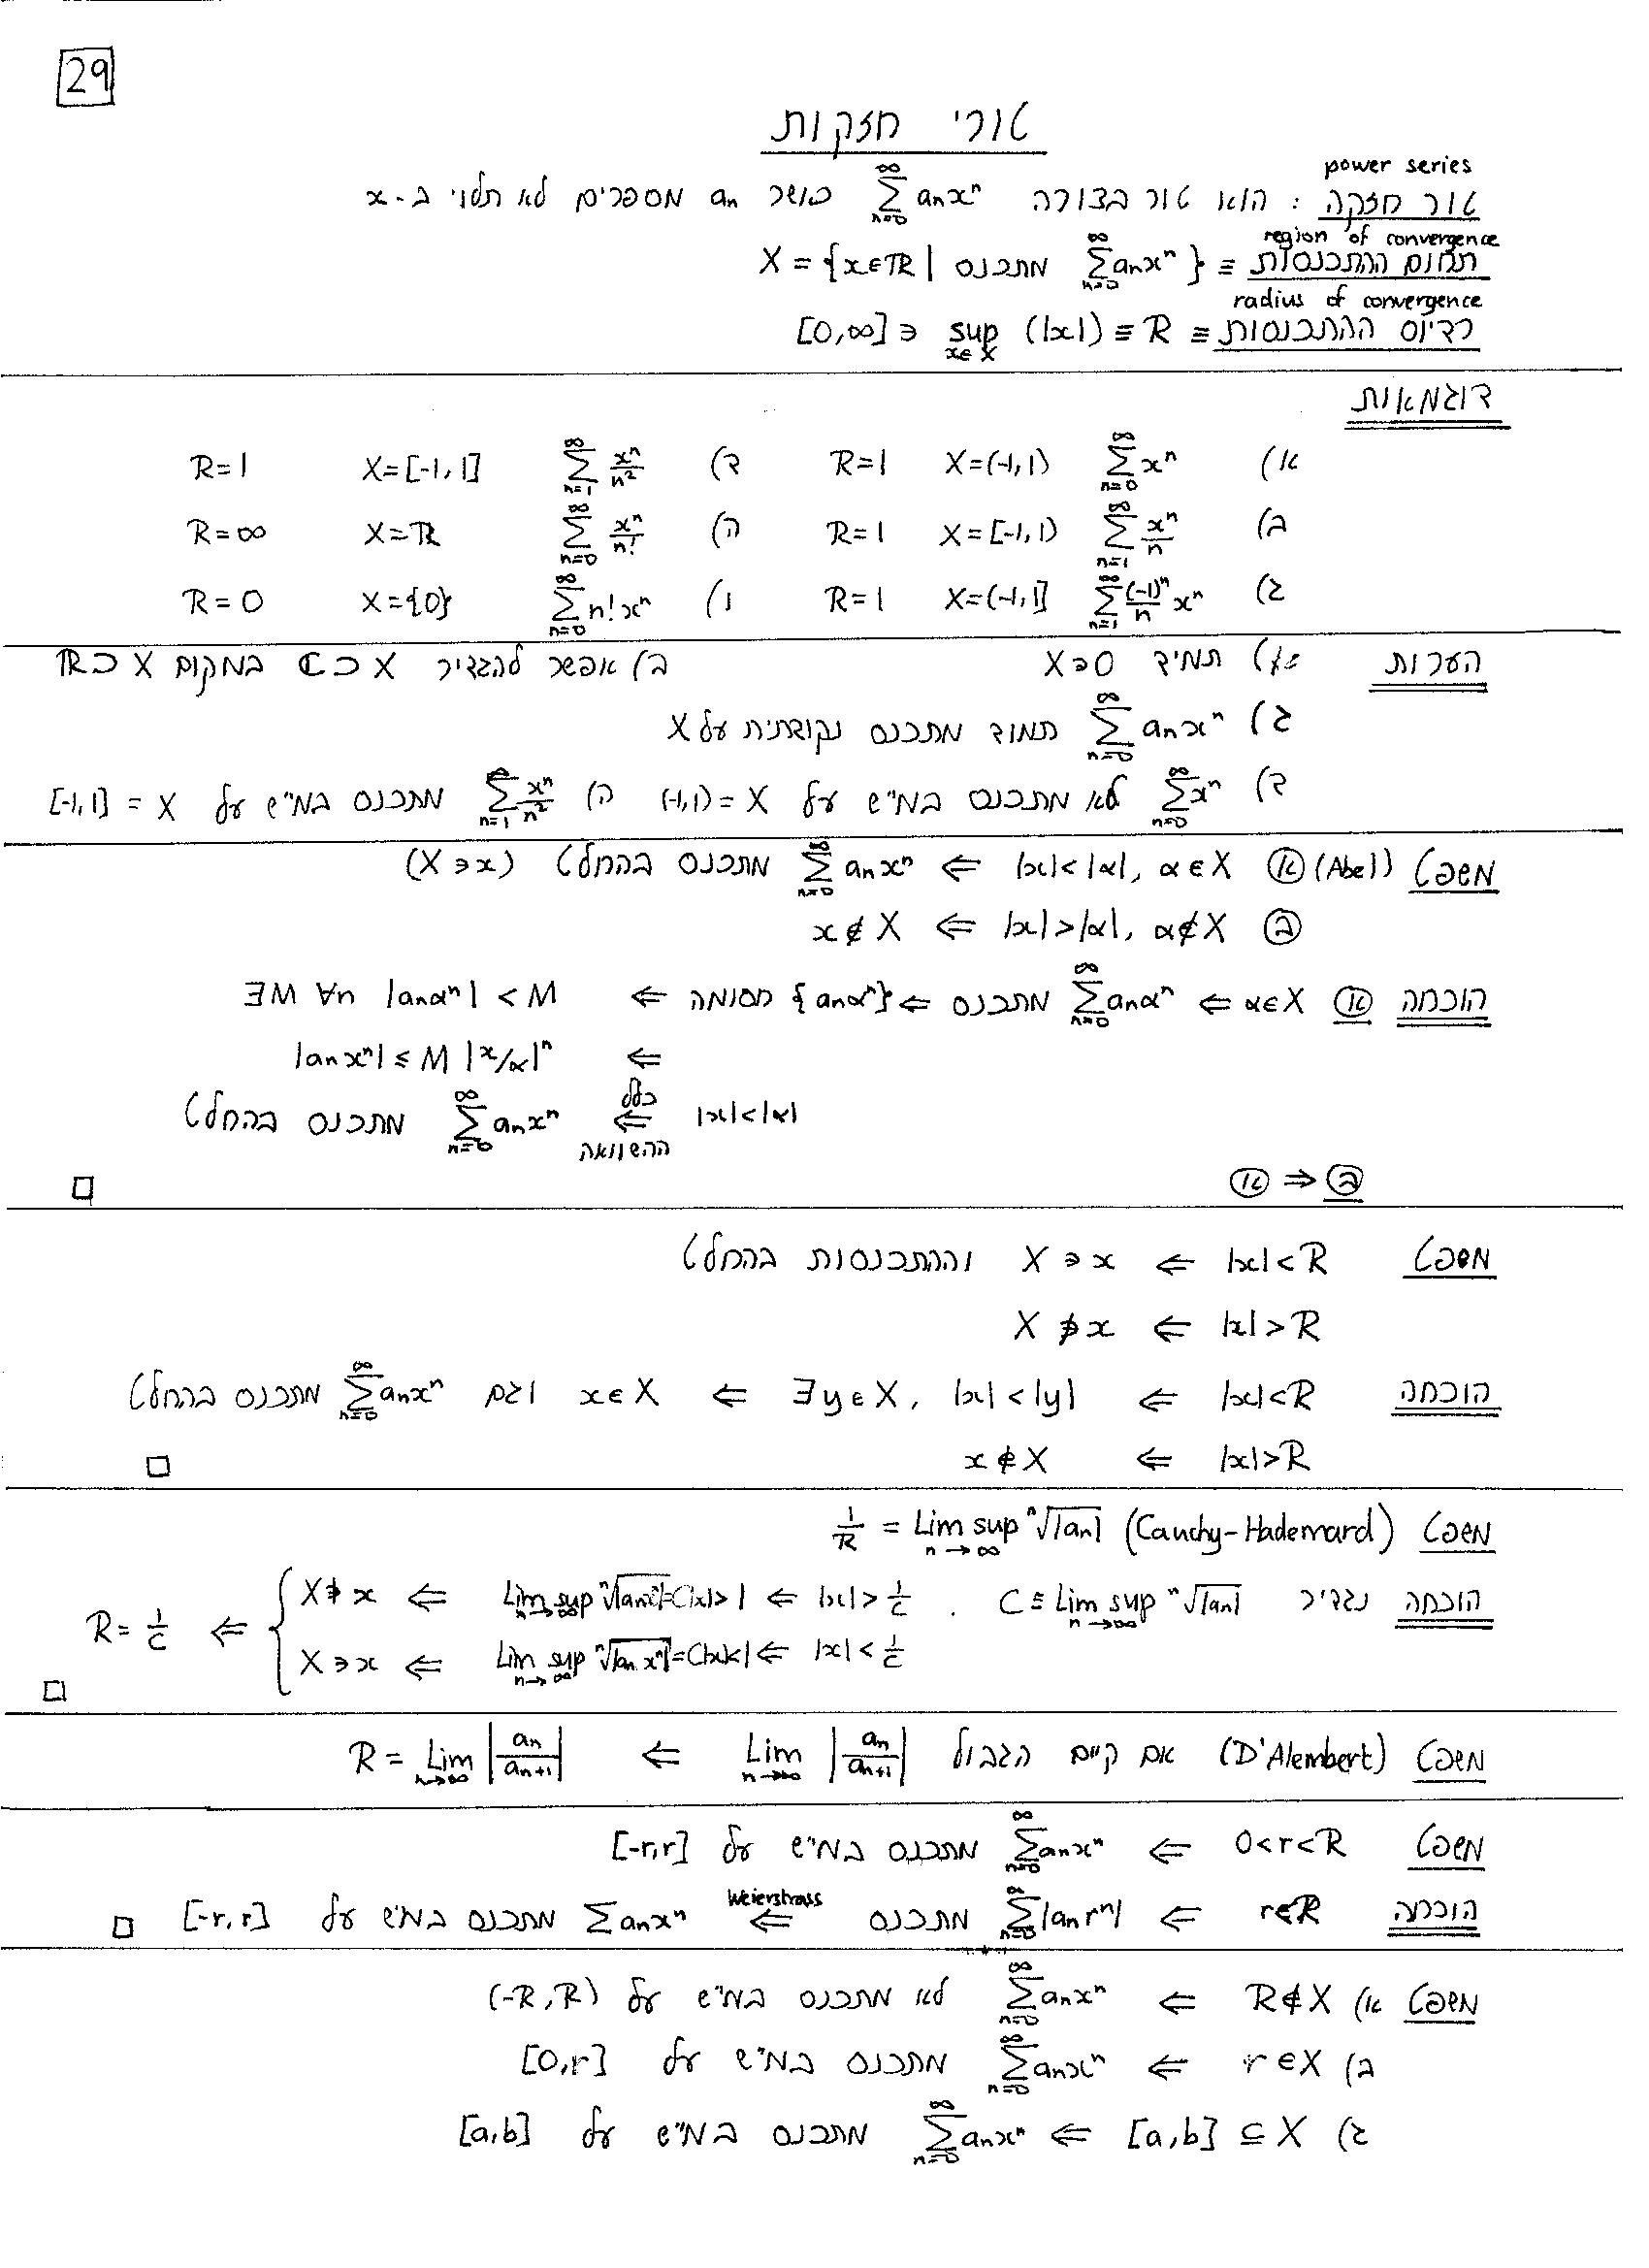 29
טורי חזקות
power series
טור חזקה : הוא טור בצורה $\sum_{n=0}^{\infty} a_n x^n$ כאשר $a_n$ מספרים לא תלוי ב-x
region of convergence
תחום ההתכנסות ≡ $X = \{x \in \mathbb{R} |$ מתכנס $\sum_{n=0}^{\infty} a_n x^n \}$
radius of convergence
רדיוס ההתכנסות ≡ $R \equiv \sup_{x \in X} (|x|) \in [0,\infty]$
דוגמאות
א) $\sum_{n=0}^{\infty} x^n$ X=(-1,1) R=1 ד) $\sum_{n=1}^{\infty} \frac{x^n}{n^2}$ X=[-1,1] R=1
ב) $\sum_{n=1}^{\infty} \frac{x^n}{n}$ X=[-1,1) R=1 ה) $\sum_{n=0}^{\infty} \frac{x^n}{n!}$ X=ℝ R=∞
ג) $\sum_{n=1}^{\infty} \frac{(-1)^n}{n} x^n$ X=(-1,1] R=1 ו) $\sum_{n=0}^{\infty} n! x^n$ X={0} R=0
הערות א) תמיד X∋0 ב) אפשר להגדיר X⊂ℂ במקום X⊂ℝ
ג) $\sum_{n=0}^{\infty} a_n x^n$ תמיד מתכנס נקודתית על X
ד) $\sum_{n=0}^{\infty} x^n$ לא מתכנס במ"ש על X=(-1,1) ה) $\sum_{n=1}^{\infty} \frac{x^n}{n^2}$ מתכנס במ"ש על X=[-1,1]
משפט (Abel) א $|x|<|\alpha|, \alpha \in X$ ⇐ $\sum_{n=0}^{\infty} a_n x^n$ מתכנס בהחלט (X∋x)
ב $|x|>|\alpha|, \alpha \notin X$ ⇐ $x \notin X$
הוכחה א $\alpha \in X$ ⇐ $\sum_{n=0}^{\infty} a_n \alpha^n$ מתכנס ⇐ $\{a_n \alpha^n\}$ חסומה ⇐ $\exists M \forall n\ |a_n \alpha^n| < M$
⇐ $|a_n x^n| \le M |x/\alpha|^n$
$|x|<|\alpha|$ כלל ⇐ ההשוואה $\sum_{n=0}^{\infty} a_n x^n$ מתכנס בהחלט
א ⇒ ב □
משפט $|x|<R$ ⇐ X∋x וההתכנסות בהחלט
$|x|>R$ ⇐ X∌x
הוכחה $|x|<R$ ⇐ $\exists y \in X, |x|<|y|$ ⇐ $x \in X$ וגם $\sum_{n=0}^{\infty} a_n x^n$ מתכנס בהחלט
$|x|>R$ ⇐ $x \notin X$ □
משפט (Cauchy-Hademard) $\frac{1}{R} = \operatorname{Lim\,sup}_{n \to \infty} \sqrt[n]{|a_n|}$
הוכחה נגדיר $C \equiv \operatorname{Lim\,sup}_{n \to \infty} \sqrt[n]{|a_n|}$ . $|x|>\frac{1}{C}$ ⇐ $\operatorname{Lim\,sup}_{n \to \infty} \sqrt[n]{|a_n x^n|}=C|x|>1$ ⇐ X∌x
$|x|<\frac{1}{C}$ ⇐ $\operatorname{Lim\,sup}_{n \to \infty} \sqrt[n]{|a_n x^n|}=C|x|<1$ ⇐ X∋x ⇐ $R=\frac{1}{C}$ □
משפט (D'Alembert) אם קיים הגבול $\operatorname{Lim}_{n \to \infty} \left|\frac{a_n}{a_{n+1}}\right|$ ⇐ $R = \operatorname{Lim}_{n \to \infty} \left|\frac{a_n}{a_{n+1}}\right|$
משפט $0<r<R$ ⇐ $\sum_{n=0}^{\infty} a_n x^n$ מתכנס במ"ש על [-r,r]
הוכחה r<R ⇐ $\sum_{n=0}^{\infty} |a_n r^n|$ מתכנס Weierstrass ⇐ $\sum a_n x^n$ מתכנס במ"ש על [-r,r] □
משפט א) $R \notin X$ ⇐ $\sum_{n=0}^{\infty} a_n x^n$ לא מתכנס במ"ש על (-R,R)
ב) $r \in X$ ⇐ $\sum_{n=0}^{\infty} a_n x^n$ מתכנס במ"ש על [0,r]
ג) $[a,b] \subseteq X$ ⇐ $\sum_{n=0}^{\infty} a_n x^n$ מתכנס במ"ש על [a,b]